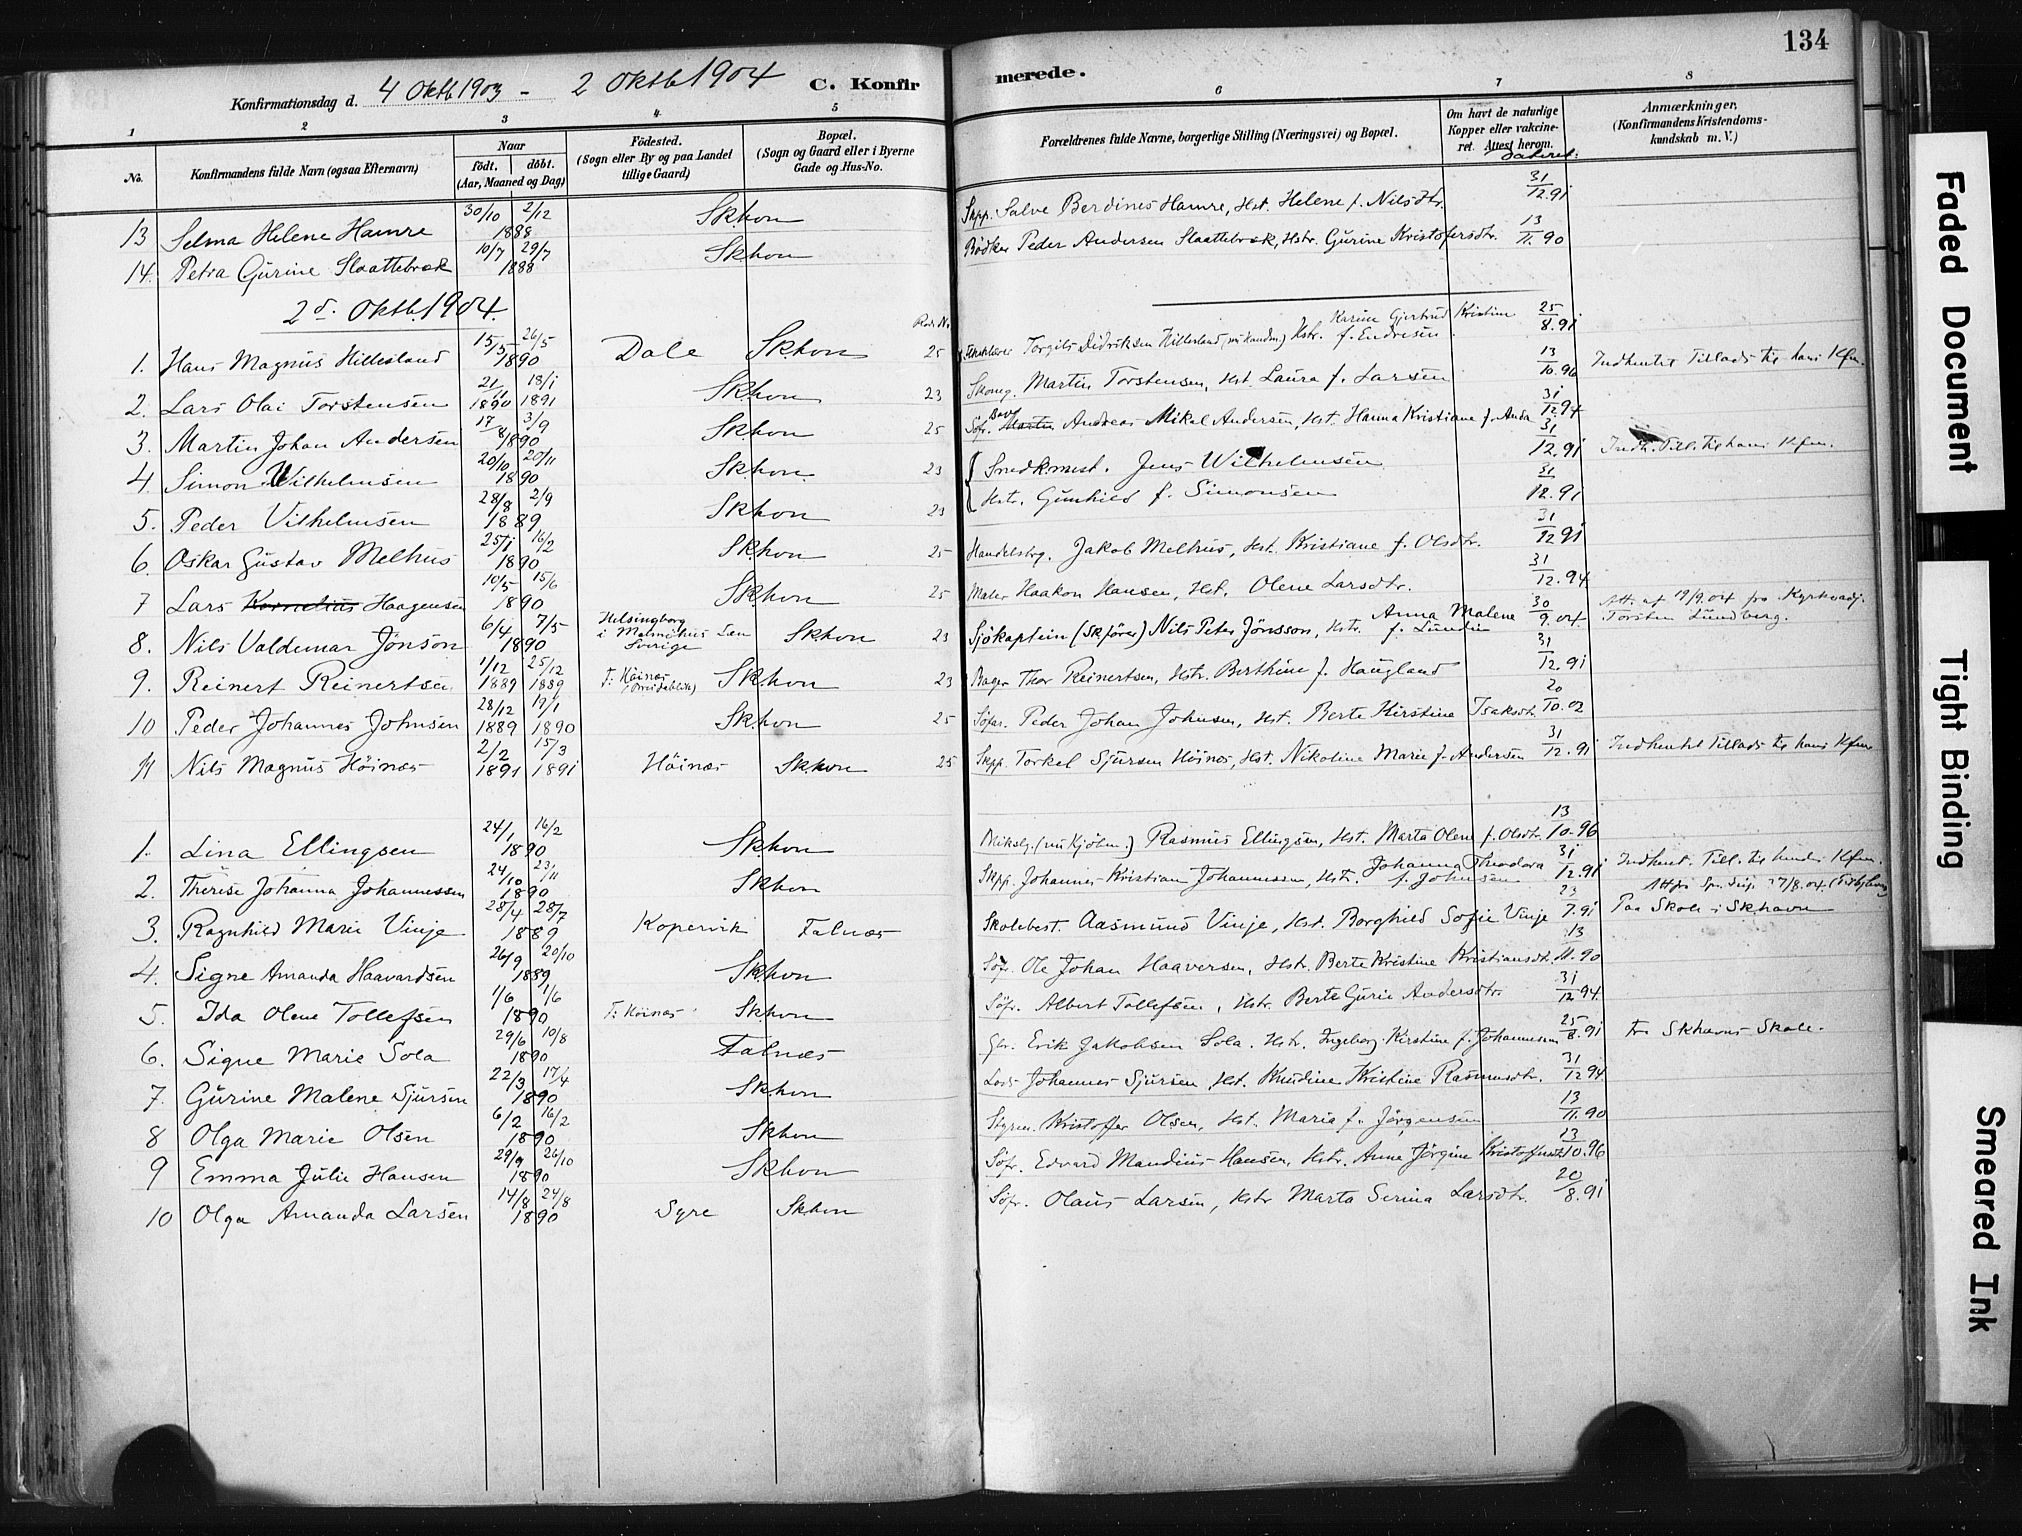 134
Konfirmationsdag d. 4 Oktb 1903 - 2 Oktb 1904 C. Konfirmerede.
1 2 3 4 5 6 7 8
No. Konfirmandens fulde Navn (ogsaa Efternavn) Naar født. døbt. (Aar, Maaned og Dag) Fødested. (Sogn eller By og paa Landet tillige Gaard) Bopæl. (Sogn og Gaard eller i Byerne Gade og Hus-No. Forældrenes fulde Navne, borgerlige Stilling (Næringsvei) og Bopæl. Om havt de naturlige Kopper eller vakcineret. Attest herom. Dateret: Anmærkninger, (Konfirmandens Kristendomskundskab m. V.)
13 Selma Helene Hamre 30/10 2/12 1888 Skhvn Skpp. Salve Berdines Hamre, Hst. Helene f. Nilsdtr. 31/12.91
14. Petra Gurine Slaattebræk 10/7 29/7 1888 Skhvn Bødker Peder Andersen Slaattebræk, Hstr. Gurine Kristofersdtr. 13/11.90
2d. Oktb. 1904.
1. Hans Magnus Hillesland 15/5 26/5 1890 Dale Skhvn 25 Torgils Didriksen Hillesland, Hstr. Karine Gjertrud Kristine f. Endresen 25/8.91
2. Lars Olai Torstensen 21/11 1890 18/1 1891 Skhvn 23 Skomg. Martin Torstensen, Hst. Laura f. Larsen 13/10.96 Indhentet Tillads. til hans Kfm.
3. Martin Johan Andersen 17/8 3/9 1890 Skhvn 25 Søfr. Martin Andreas Mikal Andersen, Hst. Hanna Kristiane f. Anda 31/12.94
4. Simon Wilhelmsen 20/10 20/11 1890 Skhvn 23 Snedkmest. Jens Wilhelmsen 31/12.91 Indh. Till. til hans Kfm.
5. Peder Vilhelmsen 28/8 2/9 1889 Skhvn 23 Hstr. Gunhild f. Simonsen 31/12.91
6. Oskar Gustav Melhus 25/1 16/2 1890 Skhvn 25 Handelsbg. Jakob Melhus, Hst. Kristiane f. Olsdtr. 31/12 91
7 Lars Kornelius Haagensen 10/5 15/6 1890 Skhvn 25 Maler Haakon Hansen, Hst. Olene Larsdtr. 31/12.94
8. Nils Valdemar Jönson 6/4 7/5 1890 Helsingborg i Malmöhus Læn Sverige Skhvn 23 Sjökaptein (Skfører) Nils Peter Jönsson, Hstr. Anna Malene f. Lundin 30/9.04. Att. af 19/9.04 fra Kyrkoadj. Torsten Lundberg.
9. Reinert Reinertsen 1/12 1889 25/12 1889 F: Höinæs Skhvn 23 Bager Thor Reinertsen, Hstr. Berthine f. Haugland 31/12.91
10 Peder Johannes Johnsen 28/12 1889 19/1 1890 Skhvn 25 Søfar. Peder Johan Johnsen, Hst. Berte Kirstine Isaksdtr. 20/10.02
11 Nils Magnus Höinæs 2/2 1891 15/3 1891 Höinæs Skhvn 25 Skpp. Torkel Sjursen Höines, Hst. Nikoline Marie f. Andersen 31/12.91 Indhentet Tillads. til hans Kfm
1. Lina Ellingsen 24/1 16/2 1890 Skhvn Rasmus Ellingsen, Hst. Marta Olene f. Olsdtr. 13/10.96
2. Therese Johanna Johannessen 24/10 23/11 1890 Skhvn Skpp. Johannes Kristian Johannessen, Hstr. Johanna Theodora f. Johnsen 31/12.91 Indhent. Till. til hendes Kfm.
3. Ragnhild Marie Vinje 28/4 28/7 1889 Kopervik Falnæs Skolebest. Aasmund Vinje, Hst. Borghild Sofie Vinje 23/7.91 Paa Skole i Skhavn
4. Signe Amanda Haavardsen 26/9 20/10 1889 Skhvn Søfr. Ole Johan Haaversen, Hstr. Berte Kristine Kristiansdtr. 13/11.90
5. Ida Olene Tollefsen 1/6 1/6 1890 F: Höinæs Skhvn Søfr. Albert Tollefsen, Hstr. Berte Gurie Andersdtr. 31/12 94.
6. Signe Marie Sola 29/6 10/8 1890 Falnæs Gbr. Erik Jakobsen Sola. Hstr. Ingeborg Kirstine f. Johannessen 25/8.91 fra Skhavns Skole.
7. Gurine Malene Sjursen 22/3 17/4 1890 Skhvn Lods Johannes Sjursen, Hst. Knudine Kristine Rasmusdtr. 31/12 94.
8 Olga Marie Olsen 6/2 16/2 1890 Skhvn Styrm. Kristoffer Olsen, Hst. Maria f. Jörgensen 13/11.90
9 Emma Julie Hansen 29/9 26/10 1890 Skhvn Søfr. Edvard Mandius Hansen, Hstr. Anne Jörgine Kristoffersdtr. 13/10.96
10 Olga Amanda Larsen 14/8 24/8 1890 Syre Skhvn Søfr. Olaus Larsen, Hstr Marta Serina Larsdtr. 20/8.91
Faded Document
Tight Binding
Smeared Ink